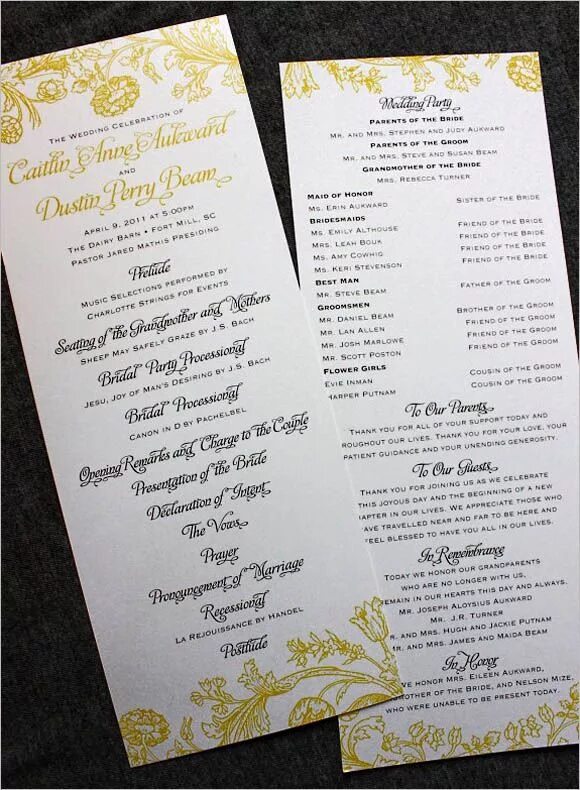 The Wedding Celebration of
Caitlin Anne Aukward
and
Dustin Perry Beam
April 9, 2011 at 5:00pm
The Dairy Barn • Fort Mill, SC
Pastor Jared Mathis Presiding
Prelude
Music Selections performed by
Charlotte Strings for Events
Seating of the Grandmother and Mothers
Sheep May Safely Graze by J.S. Bach
Bridal Party Processional
Jesu, Joy of Man's Desiring by J.S. Bach
Bridal Processional
Canon in D by Pachelbel
Opening Remarks and Charge to the Couple
Presentation of the Bride
Declaration of Intent
The Vows
Prayer
Pronouncement of Marriage
Recessional
La Rejouissance by Handel
Postlude
Wedding Party
Parents of the Bride
Mr. and Mrs. Stephen and Judy Aukward
Parents of the Groom
Mr. and Mrs. Steve and Susan Beam
Grandmother of the Bride
Mrs. Rebecca Turner
Maid of Honor
Ms. Erin Aukward Sister of the Bride
Bridesmaids
Ms. Emily Althouse Friend of the Bride
Mrs. Leah Bouk Friend of the Bride
Ms. Amy Cowhig Friend of the Bride
Ms. Keri Stevenson Friend of the Bride
Best Man
Mr. Steve Beam Father of the Groom
Groomsmen
Mr. Daniel Beam Brother of the Groom
Mr. Lan Allen Friend of the Groom
Mr. Josh Marlowe Friend of the Groom
Mr. Scott Poston Friend of the Groom
Flower Girls
Evie Inman Cousin of the Groom
Harper Putnam Cousin of the Groom
To Our Parents
Thank you for all of your support today and
roughout our lives. Thank you for your love, your
patient guidance and your unending generosity.
To Our Guests
Thank you for joining us as we celebrate
this joyous day and the beginning of a new
hapter in our lives. We appreciate those who
ave travelled near and far to be here and
feel blessed to have you all in our lives.
In Remembrance
Today we honor our grandparents
who are no longer with us,
remain in our hearts this day and always.
Mr. Joseph Aloysius Aukward
Mr. J.R. Turner
Mr. and Mrs. Hugh and Jackie Putnam
Mr. and Mrs. James and Maida Beam
In Honor
We honor Mrs. Eileen Aukward,
brother of the Bride, and Nelson Mize,
who were unable to be present today.